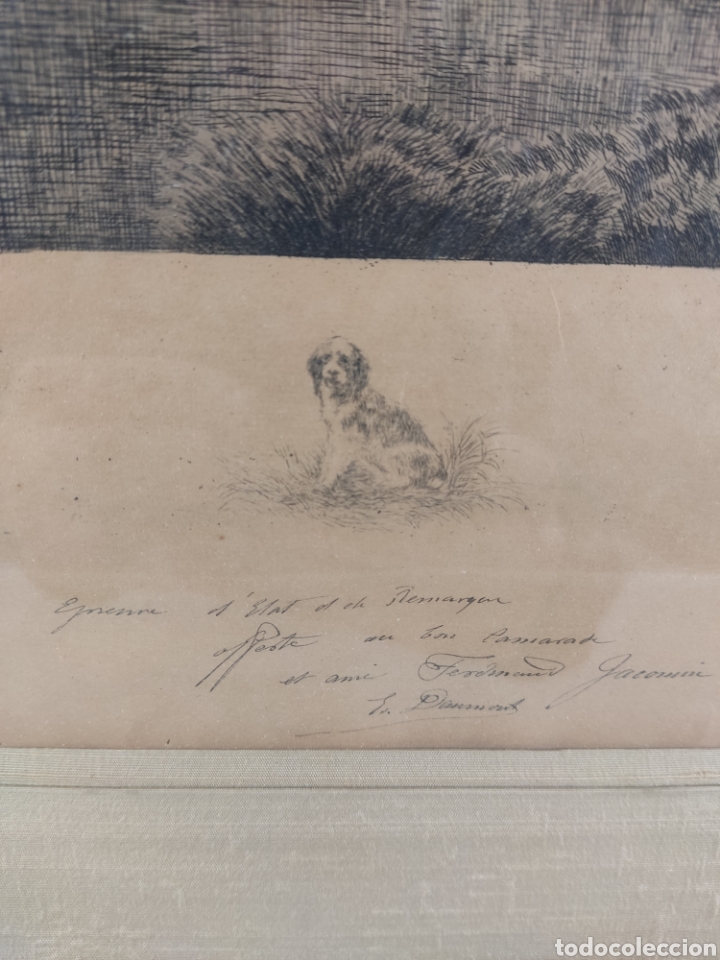 Epreuve d'Etat et de Remarque
offerte au bon Camarade
et ami Ferdinand Jacomin
E. Daumont
todocoleccion